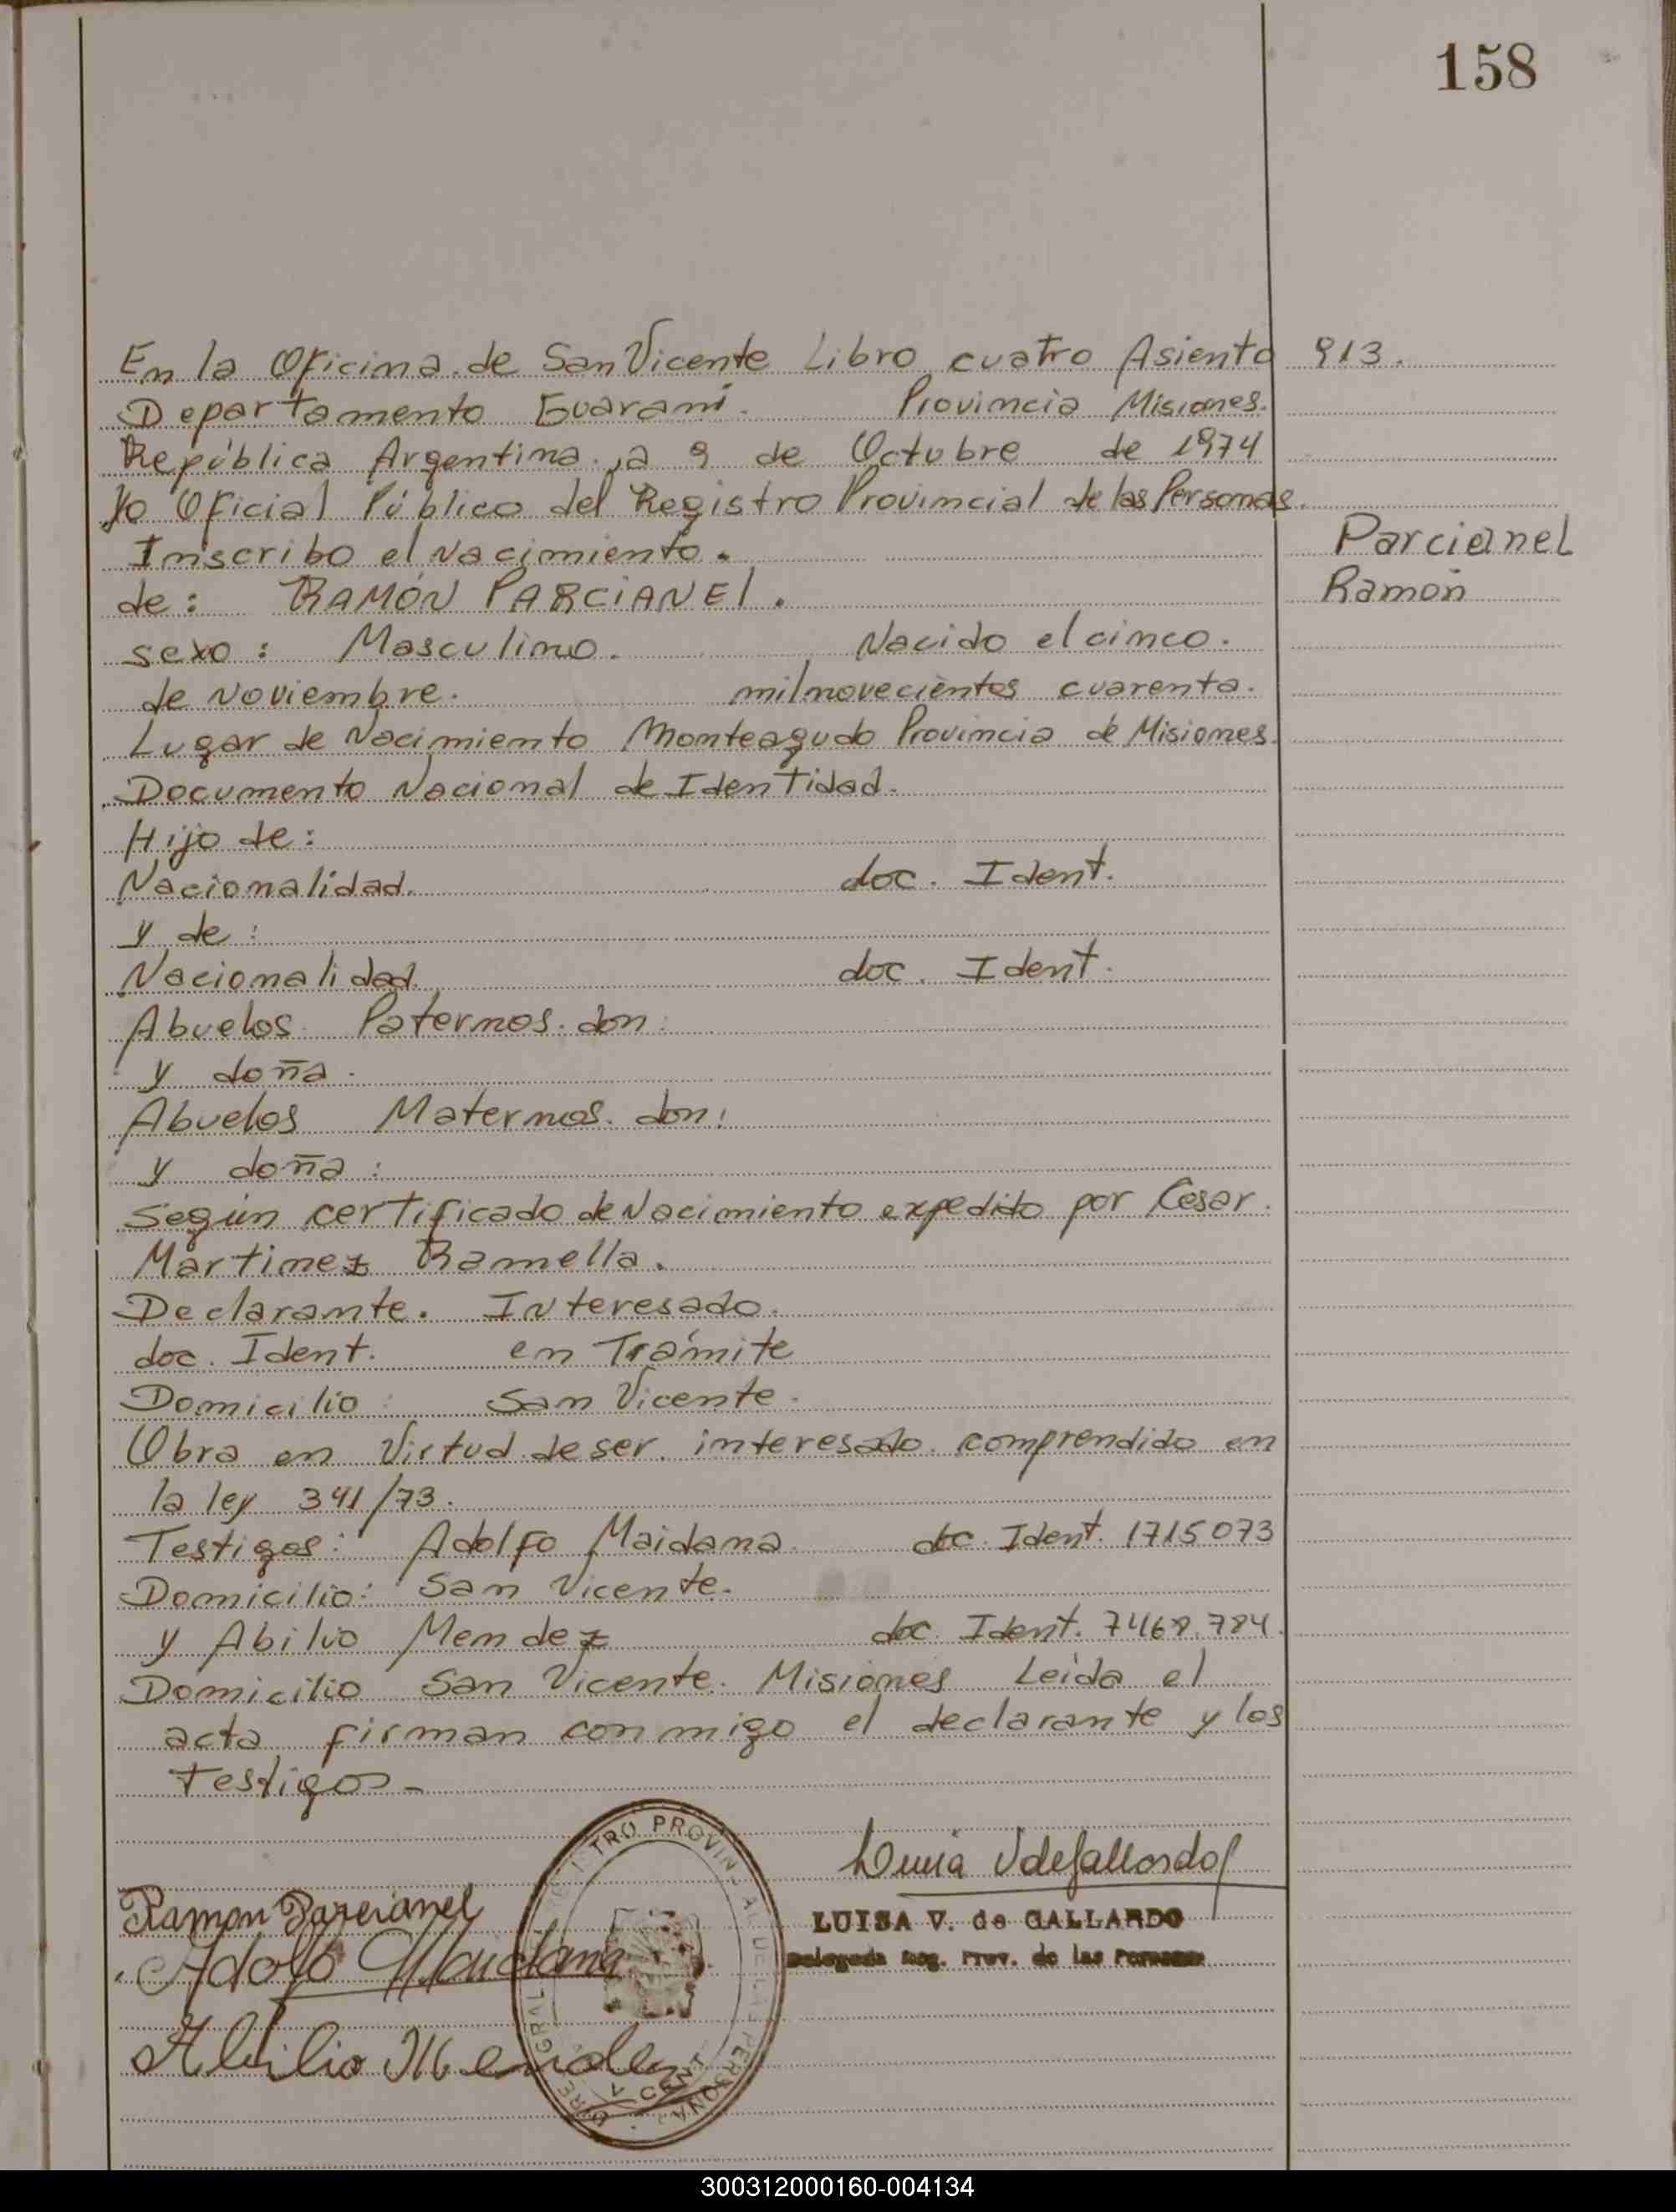 158
En la Oficina de San Vicente Libro cuatro Asiento 913.
Departamento Guarani. Provincia Misiones.
República Argentina, a 9 de Octubre de 1974
Yo Oficial Público del Registro Provincial de las Personas.
Inscribo el Nacimiento.
Parcianel
de: RAMÓN PARCIANEl.
Ramón
sexo: Masculino. Nacido el cinco.
de Noviembre. milnovecientos cuarenta.
Lugar de Nacimiento Monteagudo Provincia de Misiones.
Documento Nacional de Identidad.
Hijo de:
Nacionalidad. doc. Ident.
y de:
Nacionalidad. doc. Ident.
Abuelos Paternos. don:
y doña.
Abuelos Maternos. don:
y doña:
Según certificado de Nacimiento expedido por Cesar.
Martinez Ramella.
Declarante. Interesado.
doc. Ident. en Trámite
Domicilio: San Vicente.
Obra en Virtud de ser interesado comprendido en
la ley 341/73.
Testigos: Adolfo Maidana doc. Ident. 1715073
Domicilio: San Vicente.
y Abilio Mendez doc. Ident. 7468.784.
Domicilio San Vicente. Misiones Leída el
acta firman conmigo el declarante y los
Testigos.-
Ramon Parcianel
Adolfo Maidana
Abilio Mendez
LUISA V. de GALLARDO
Delegada Reg. Prov. de las Personas
300312000160-004134